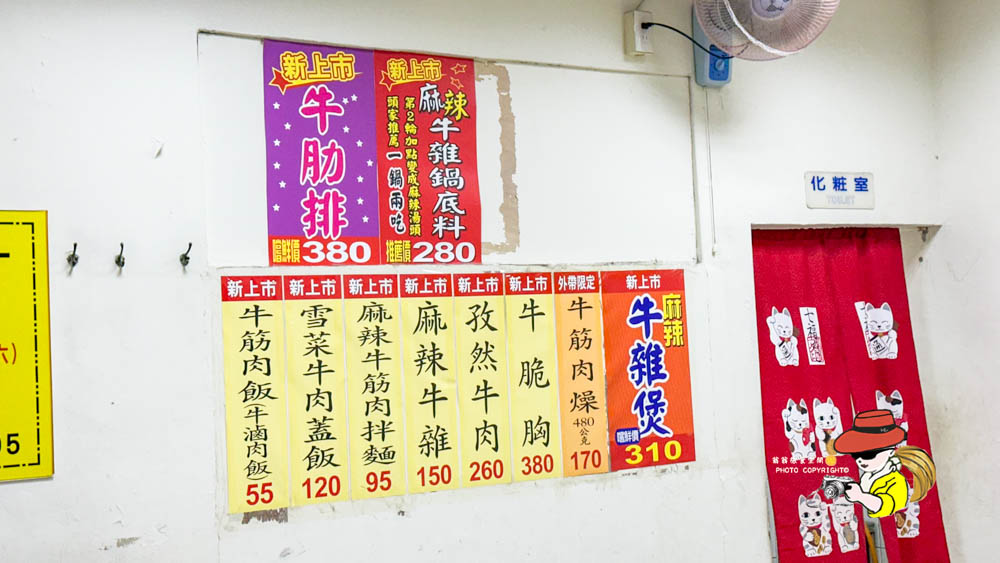 新上市
牛肋排
嚐鮮價380
新上市
麻辣牛雜鍋底料
第2輪加點變成麻辣湯頭
頭家推薦 一鍋兩吃
推薦價280
新上市
牛筋肉飯(牛滷肉飯)
55
新上市
雪菜牛肉蓋飯
120
新上市
麻辣牛筋肉拌麵
95
新上市
麻辣牛雜
150
新上市
孜然牛肉
260
新上市
牛脆胸
380
外帶限定
牛筋肉燥
480公克
170
新上市
麻辣
牛雜煲
嚐鮮價
310
化粧室
TOILET
六)
95
PHOTO COPYRIGHT